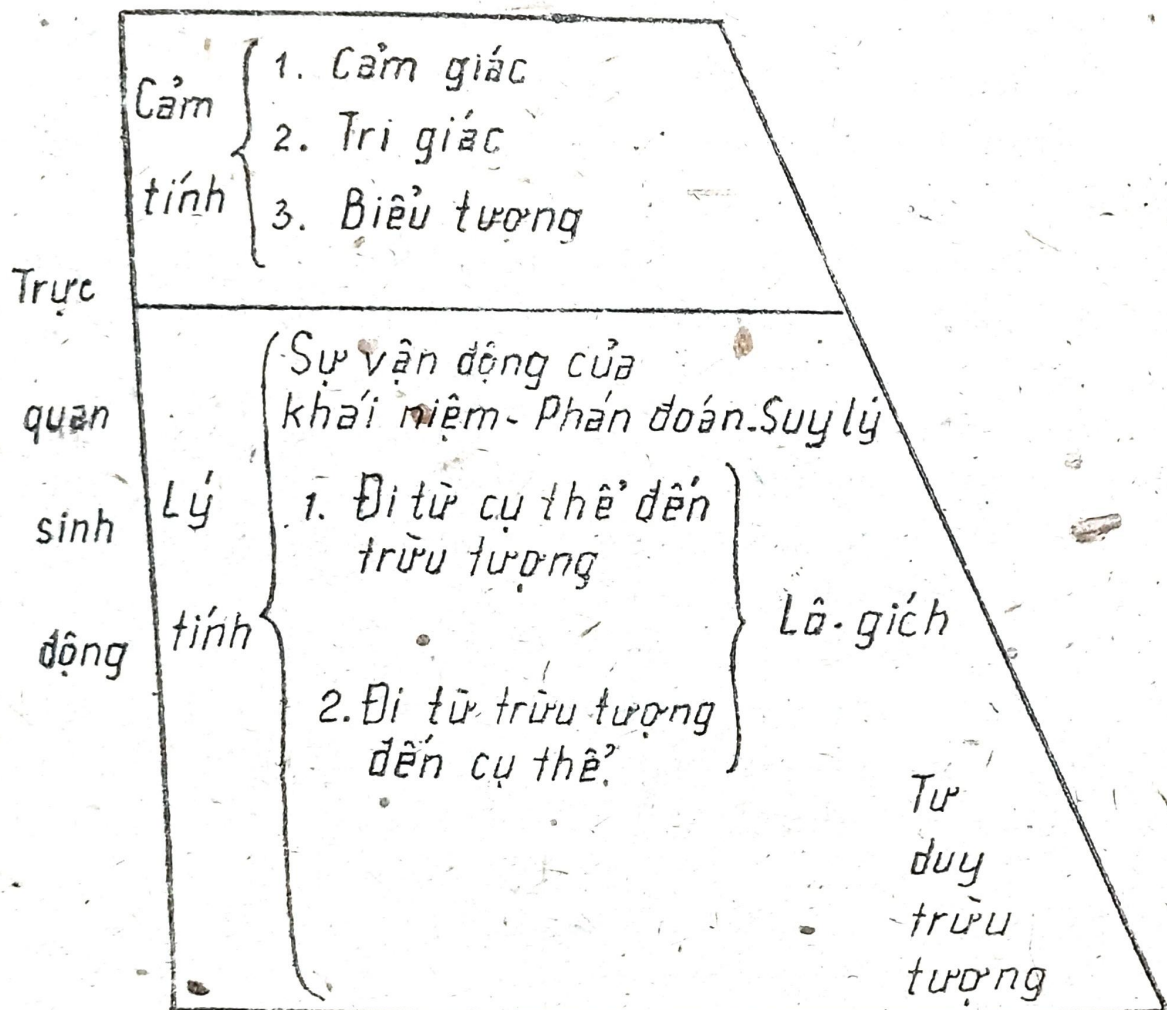 Cảm
tính
1. Cảm giác
2. Tri giác
3. Biểu tượng
Trực
quan
sinh
động
Lý
tính
Sự vận động của
khái niệm - Phán đoán. Suy lý
1. Đi từ cụ thể đến
trừu tượng
2. Đi từ trừu tượng
đến cụ thể.
Lô-gích
Tư
duy
trừu
tượng